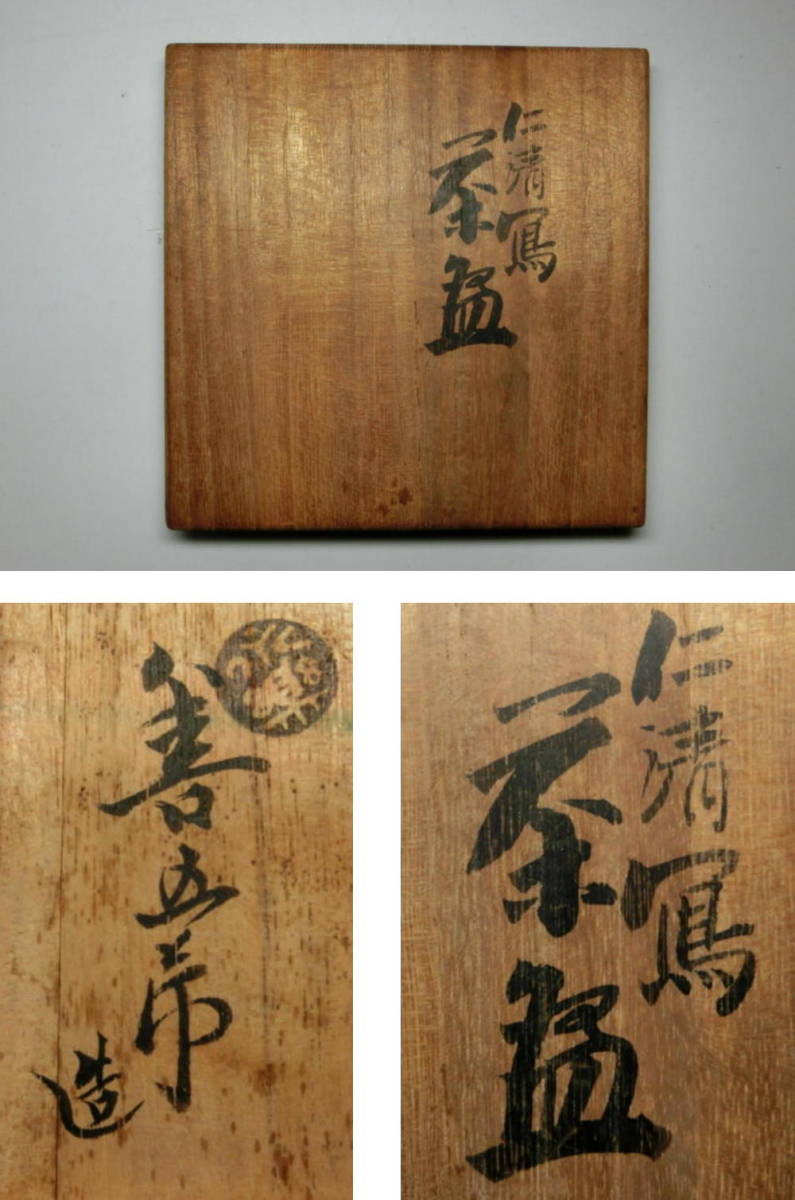 仁清寫
茶盌
善五郎
造
仁清寫
茶盌